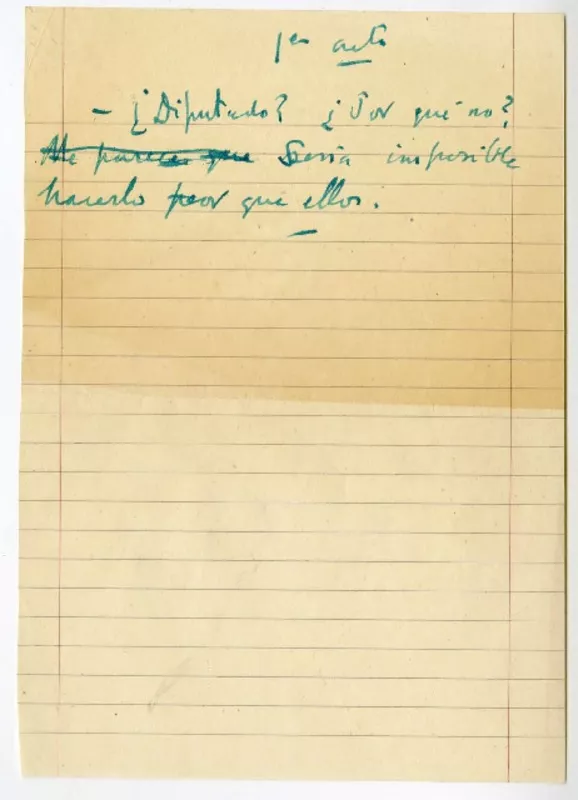 1er acto
- ¿Diputado? ¿Por qué no?
Me parece que Sería imposible
hacerlo peor que ellos.